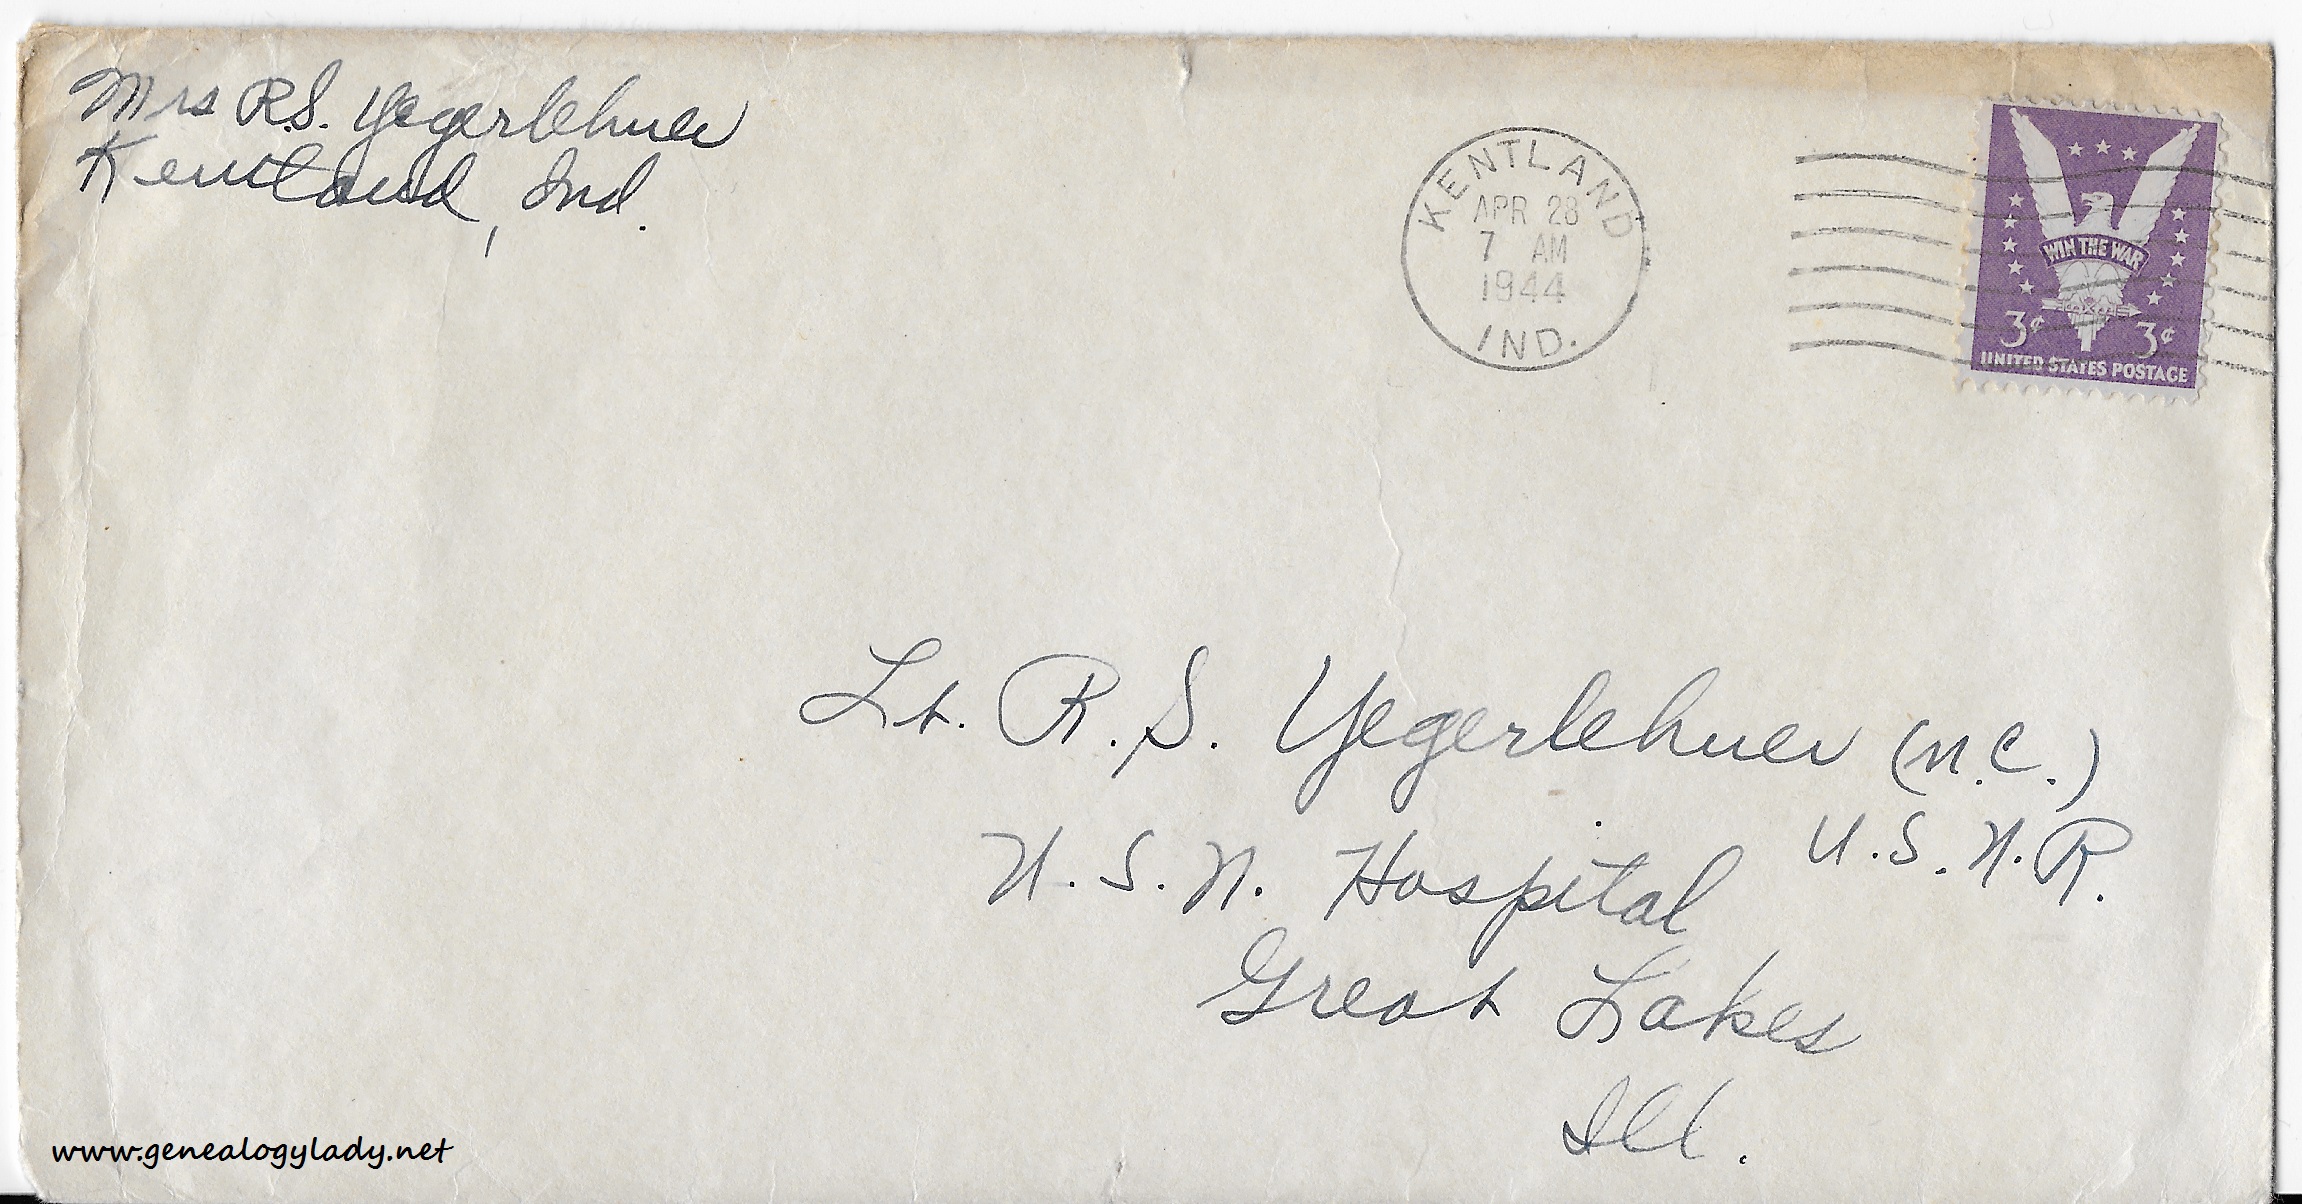 Mrs R.S. Yegerlehner
Kentland, Ind.
KENTLAND
APR 28
7 AM
1944
IND.
WIN THE WAR
3¢ 3¢
UNITED STATES POSTAGE
Lt. R. S. Yegerlehner (M.C.)
U.S.N.R.
U.S.N. Hospital
Great Lakes
Ill.
www.genealogylady.net